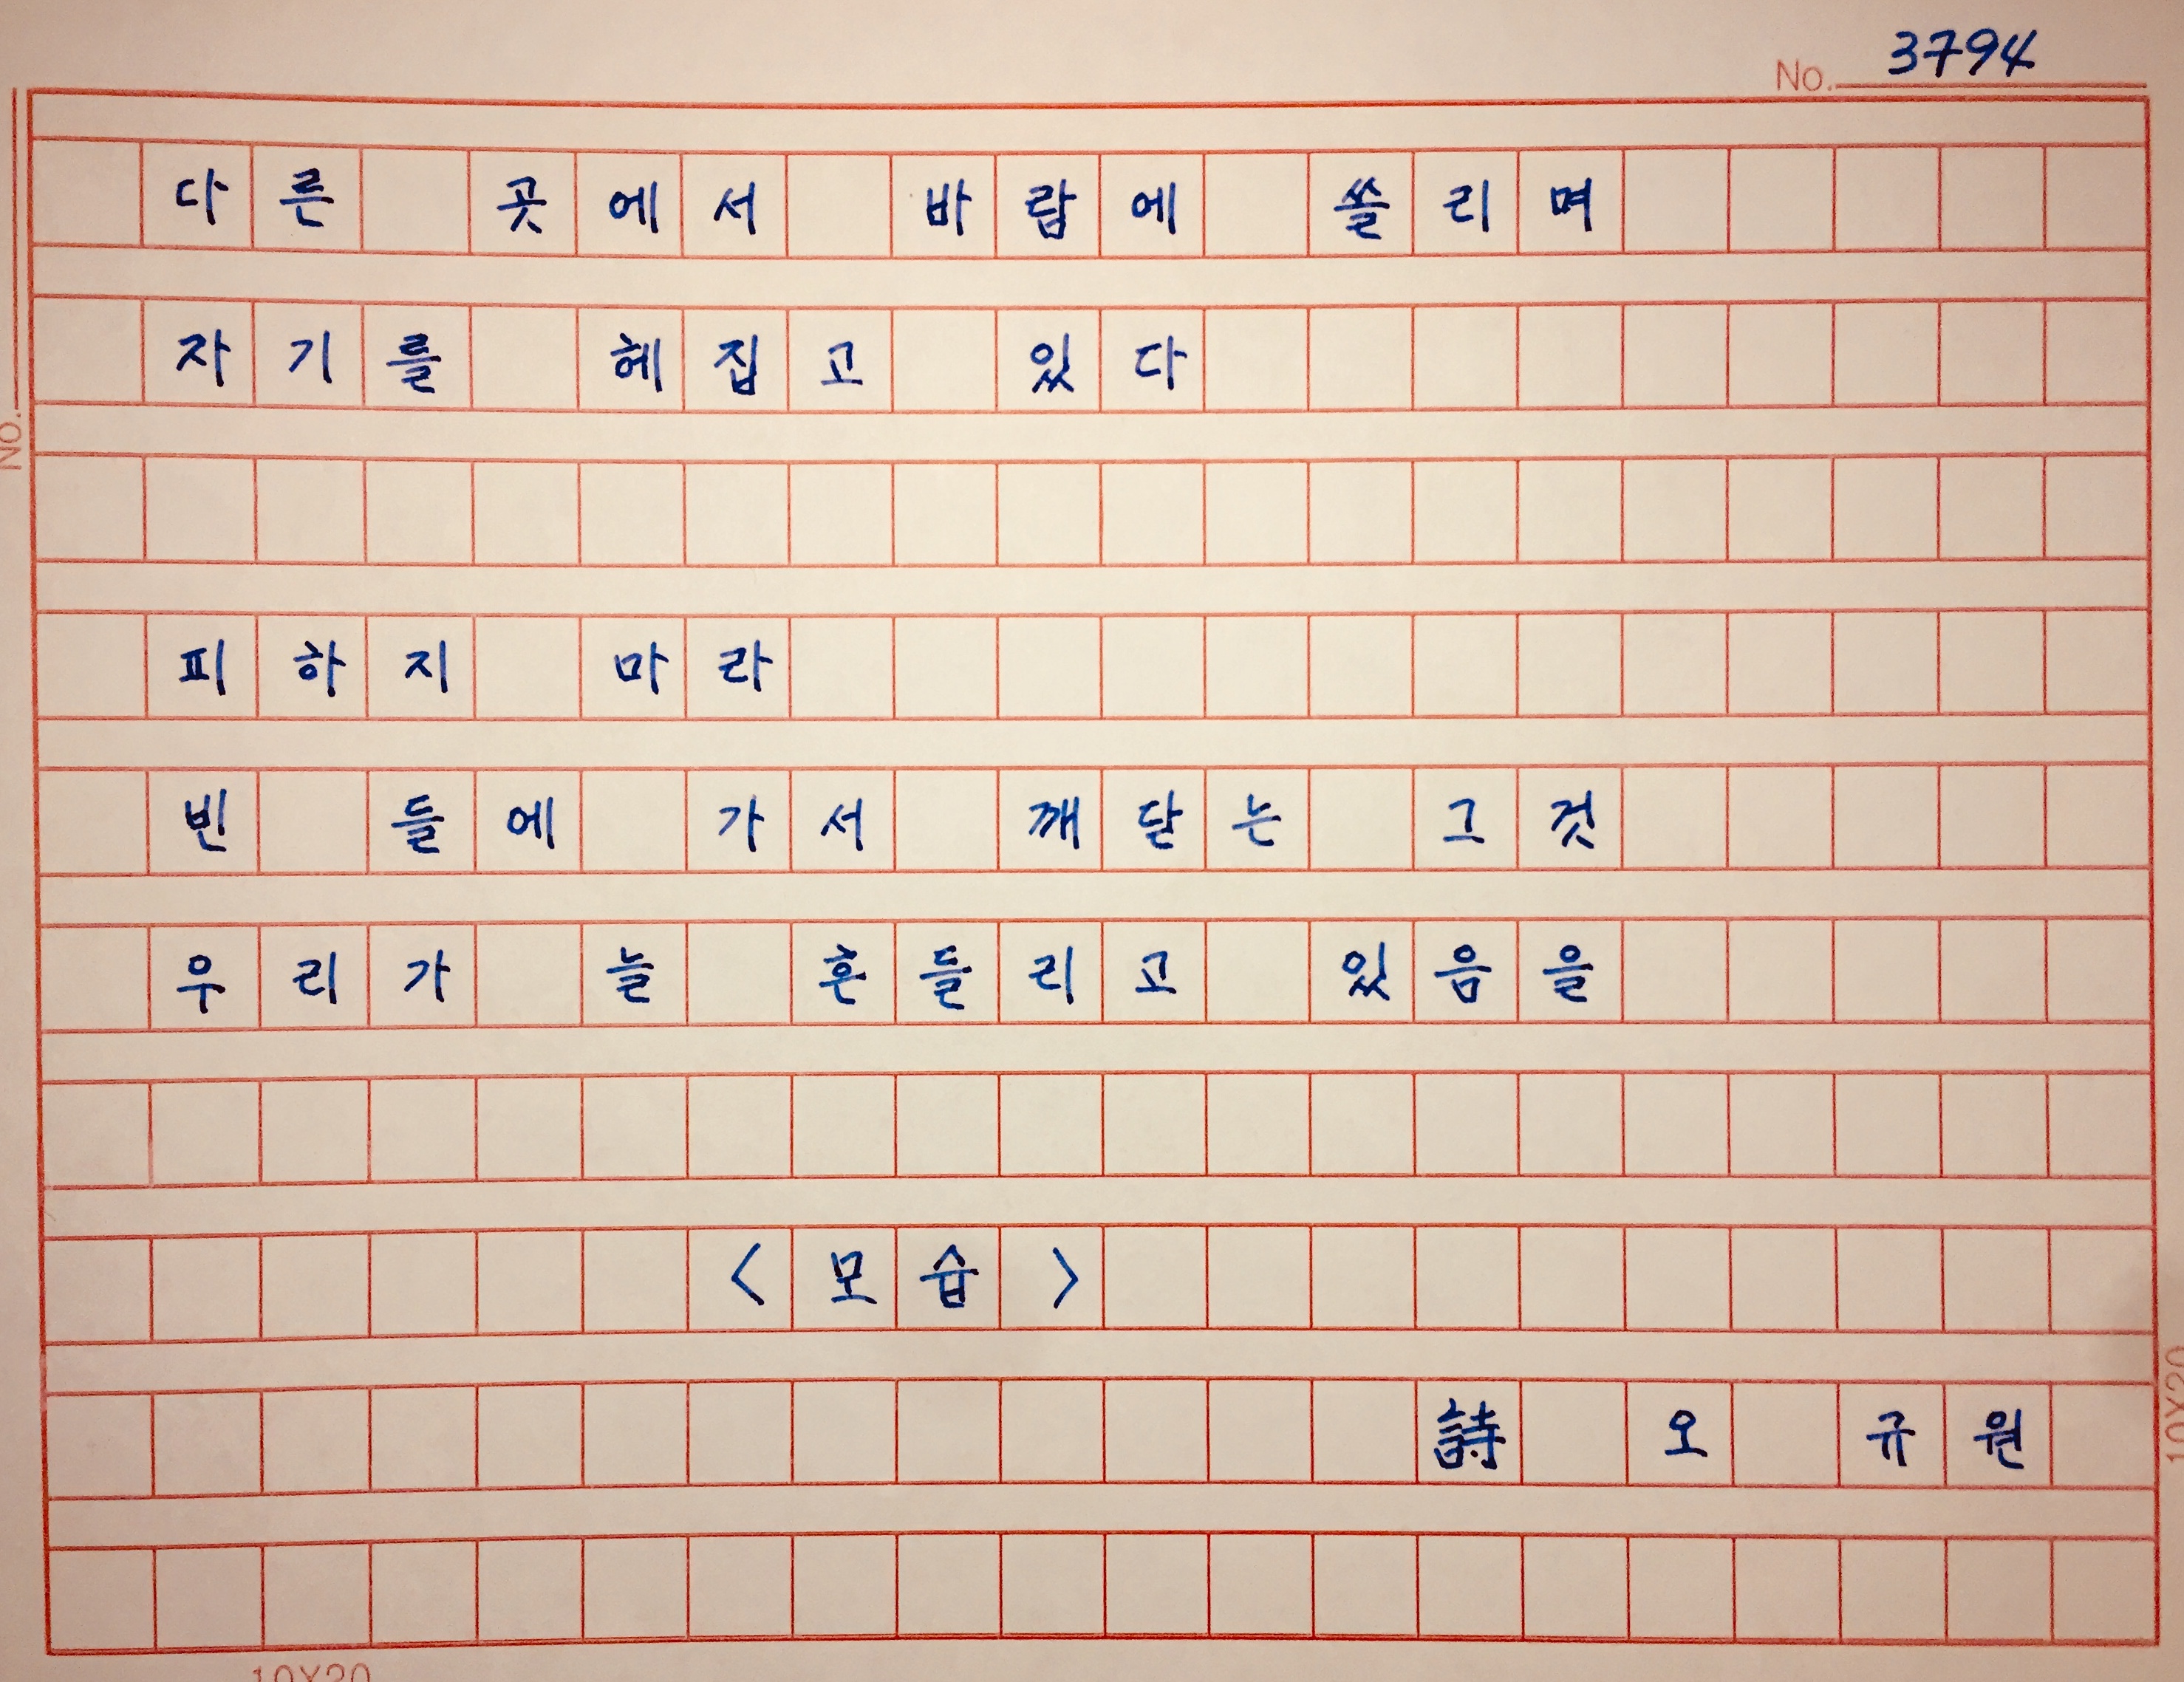 No. 3794
다른 곳에서 바람에 쏠리며
자기를 헤집고 있다
No.
피하지 마라
빈 들에 가서 깨닫는 그것
우리가 늘 흔들리고 있음을
<모습>
詩 오 규원
10X20
10X20